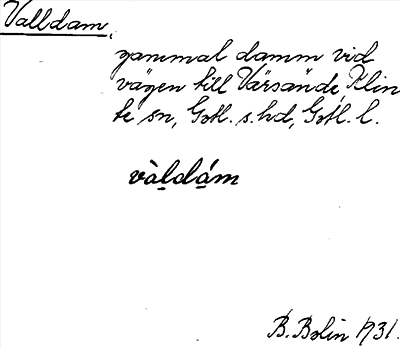 Valldam,
gammal damm vid
vägen till Värsände, Klin
te sn, Gotl. s. hd, Gotl. l.
vàldám
B. Bolin 1931.